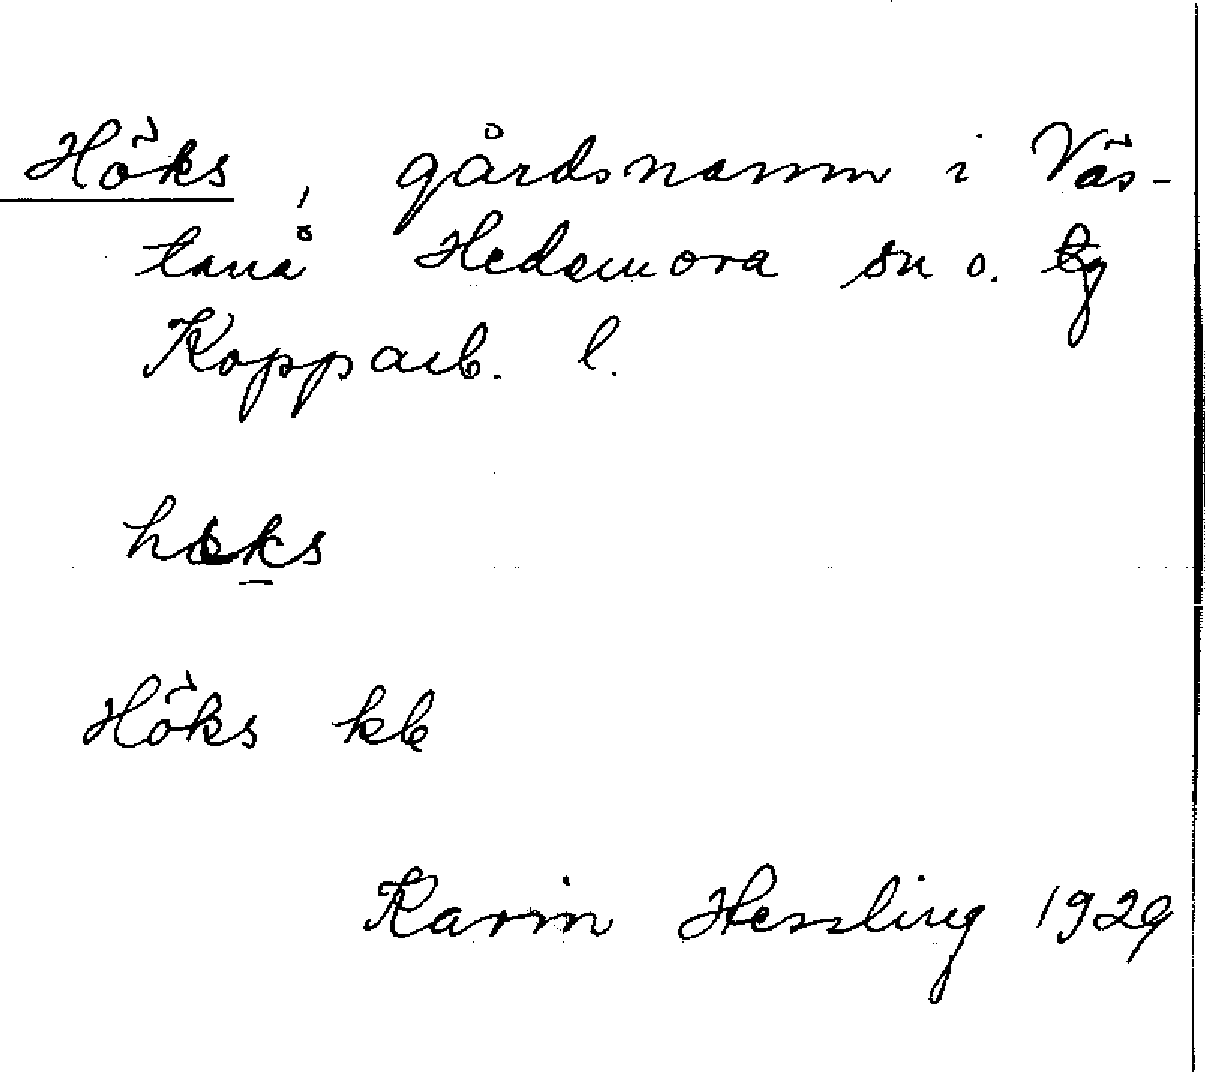 Höks, gårdsnamn i Väs-
tanå Hedemora sn o. tg
Kopparb. l.
Höks kb
Karin Hessling 1929